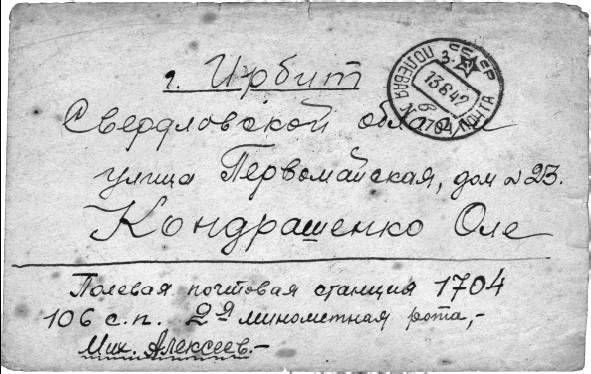 г. Ирбит
Свердловской области
улица Первомайская, дом № 23.
Кондрашенко Оле
Полевая почтовая станция 1704
106 с.п. 2я минометная рота,-
Мих. Алексеев.-
СССР
ПОЛЕВАЯ ПОЧТА
13 8 42
№ 1704